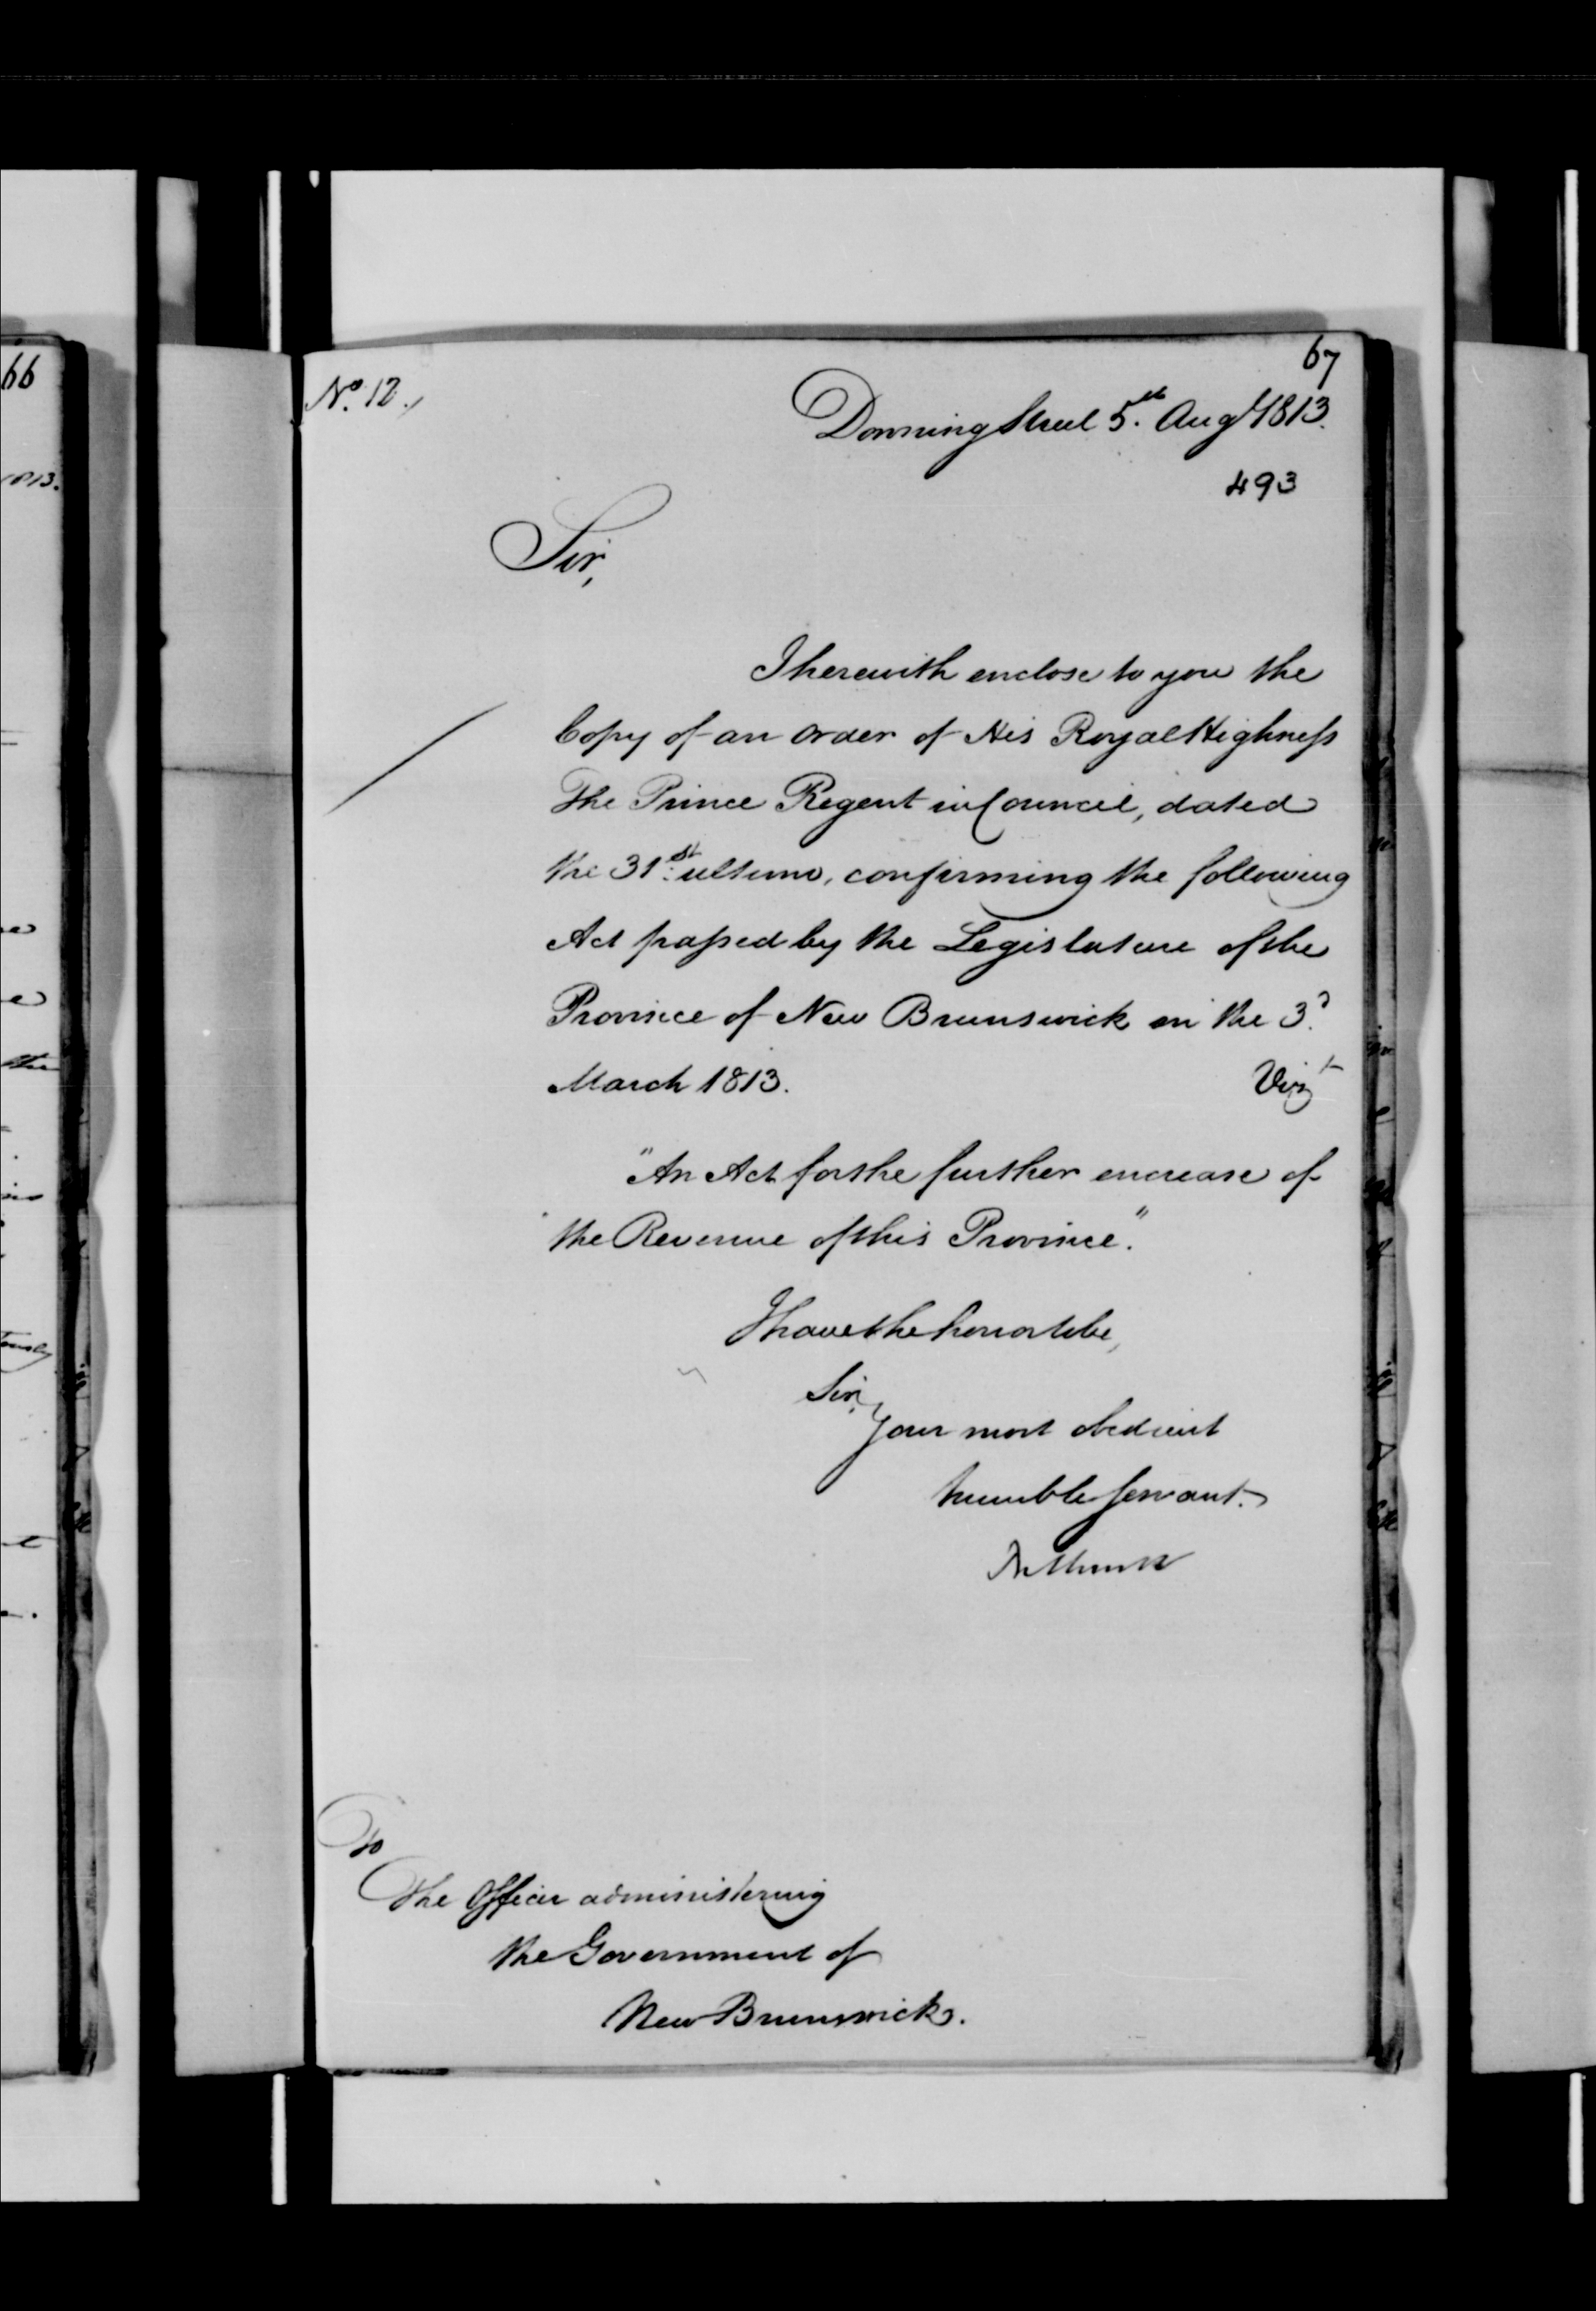 66
1813.
the
67
No. 12.
Downing Street 5th. Augt 1813.
493
Sir,
I herewith enclose to you the
Copy of an Order of His Royal Highness
The Prince Regent in Council, dated
the 31st. ultimo, confirming the following
Act passed by the Legislature of the
Province of New Brunswick on the 3d.
March 1813. Vizt
"An Act for the further encrease of
the Revenue of this Province."
I have the honor to be,
Sir,
Your most obedient
humble Servant.
Bathurst
To
The Officer administering
the Government of
New Brunswick.